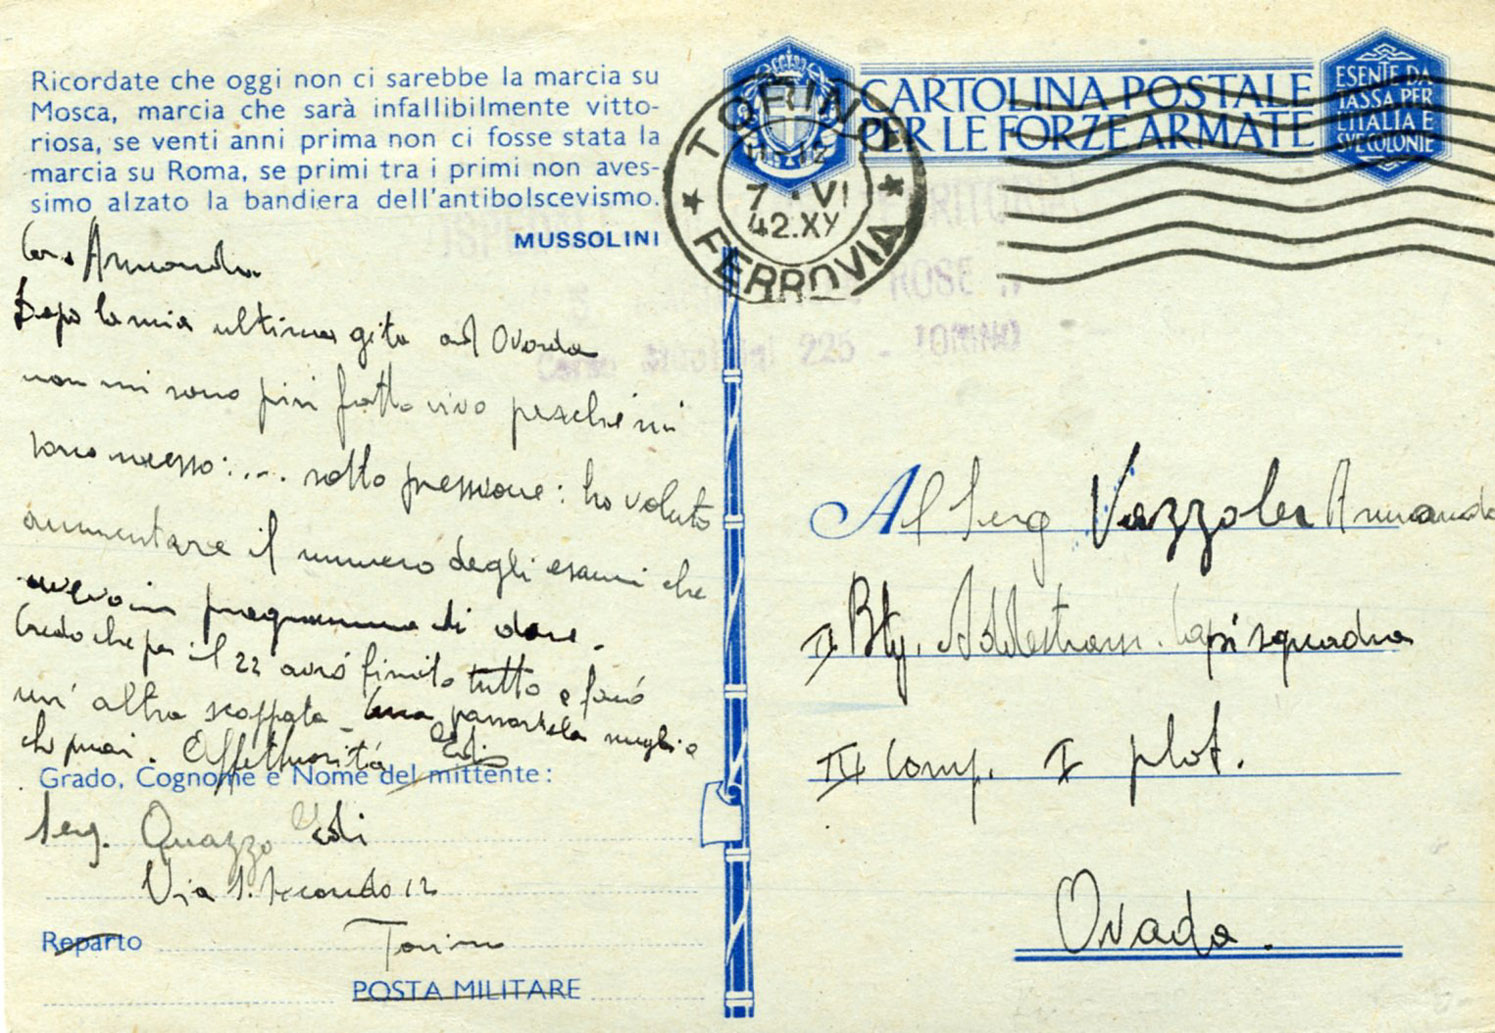 Ricordate che oggi non ci sarebbe la marcia su
Mosca, marcia che sarà infallibilmente vitto-
riosa, se venti anni prima non ci fosse stata la
marcia su Roma, se primi tra i primi non aves-
simo alzato la bandiera dell'antibolscevismo.
MUSSOLINI
Caro Armando
Dopo la mia ultima gita ad Ovada
non mi sono più fatto vivo perché mi
sono messo: .... sotto pressione: ho voluto
aumentare il numero degli esami che
avevo in programma di dare.
Credo che per il 22 avrò finito tutto e farò
un'altra scappata - passartela meglio
che puoi. Affettuosità
Grado, Cognome e Nome del mittente:
Serg. Quazzo
Via S. Secondo 12
Reparto Torino
POSTA MILITARE
CARTOLINA POSTALE
PER LE FORZE ARMATE
ESENTE DA
TASSA PER
L'ITALIA E
SUE COLONIE
TORINO
7 · VI
42.XX
FERROVIA
225 - TORINO
Al Serg Vazzoler Armando
II Btg. Addestram. Capi squadra
III Comp. I plot.
Ovada.